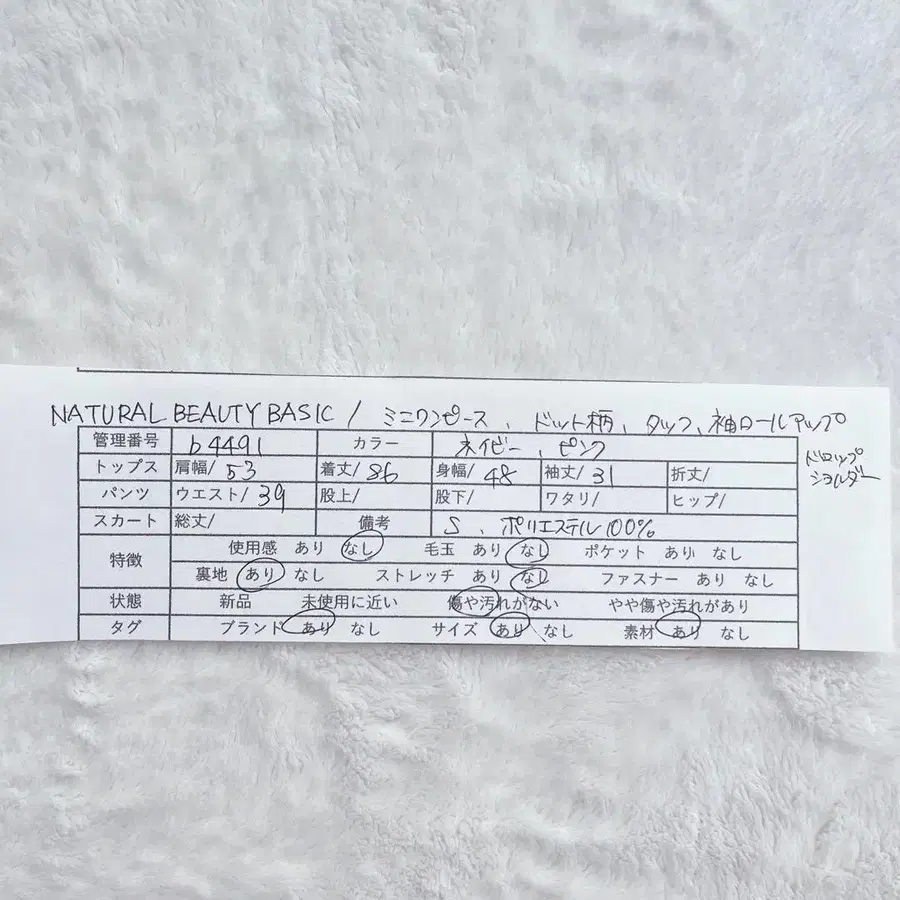 NATURAL BEAUTY BASIC / ミニワンピース、ドット柄、タック、袖ロールアップ
ドロップ
ショルダー
管理番号 b4491 カラー ネイビー、ピンク
トップス 肩幅/53 着丈/86 身幅/48 袖丈/31 裄丈/
パンツ ウエスト/39 股上/ 股下/ ワタリ/ ヒップ/
スカート 総丈/ 備考 S、ポリエステル100%
特徴 使用感 あり なし 毛玉 あり なし ポケット あり なし
裏地 あり なし ストレッチ あり なし ファスナー あり なし
状態 新品 未使用に近い 傷や汚れがない やや傷や汚れがあり
タグ ブランド あり なし サイズ あり なし 素材 あり なし